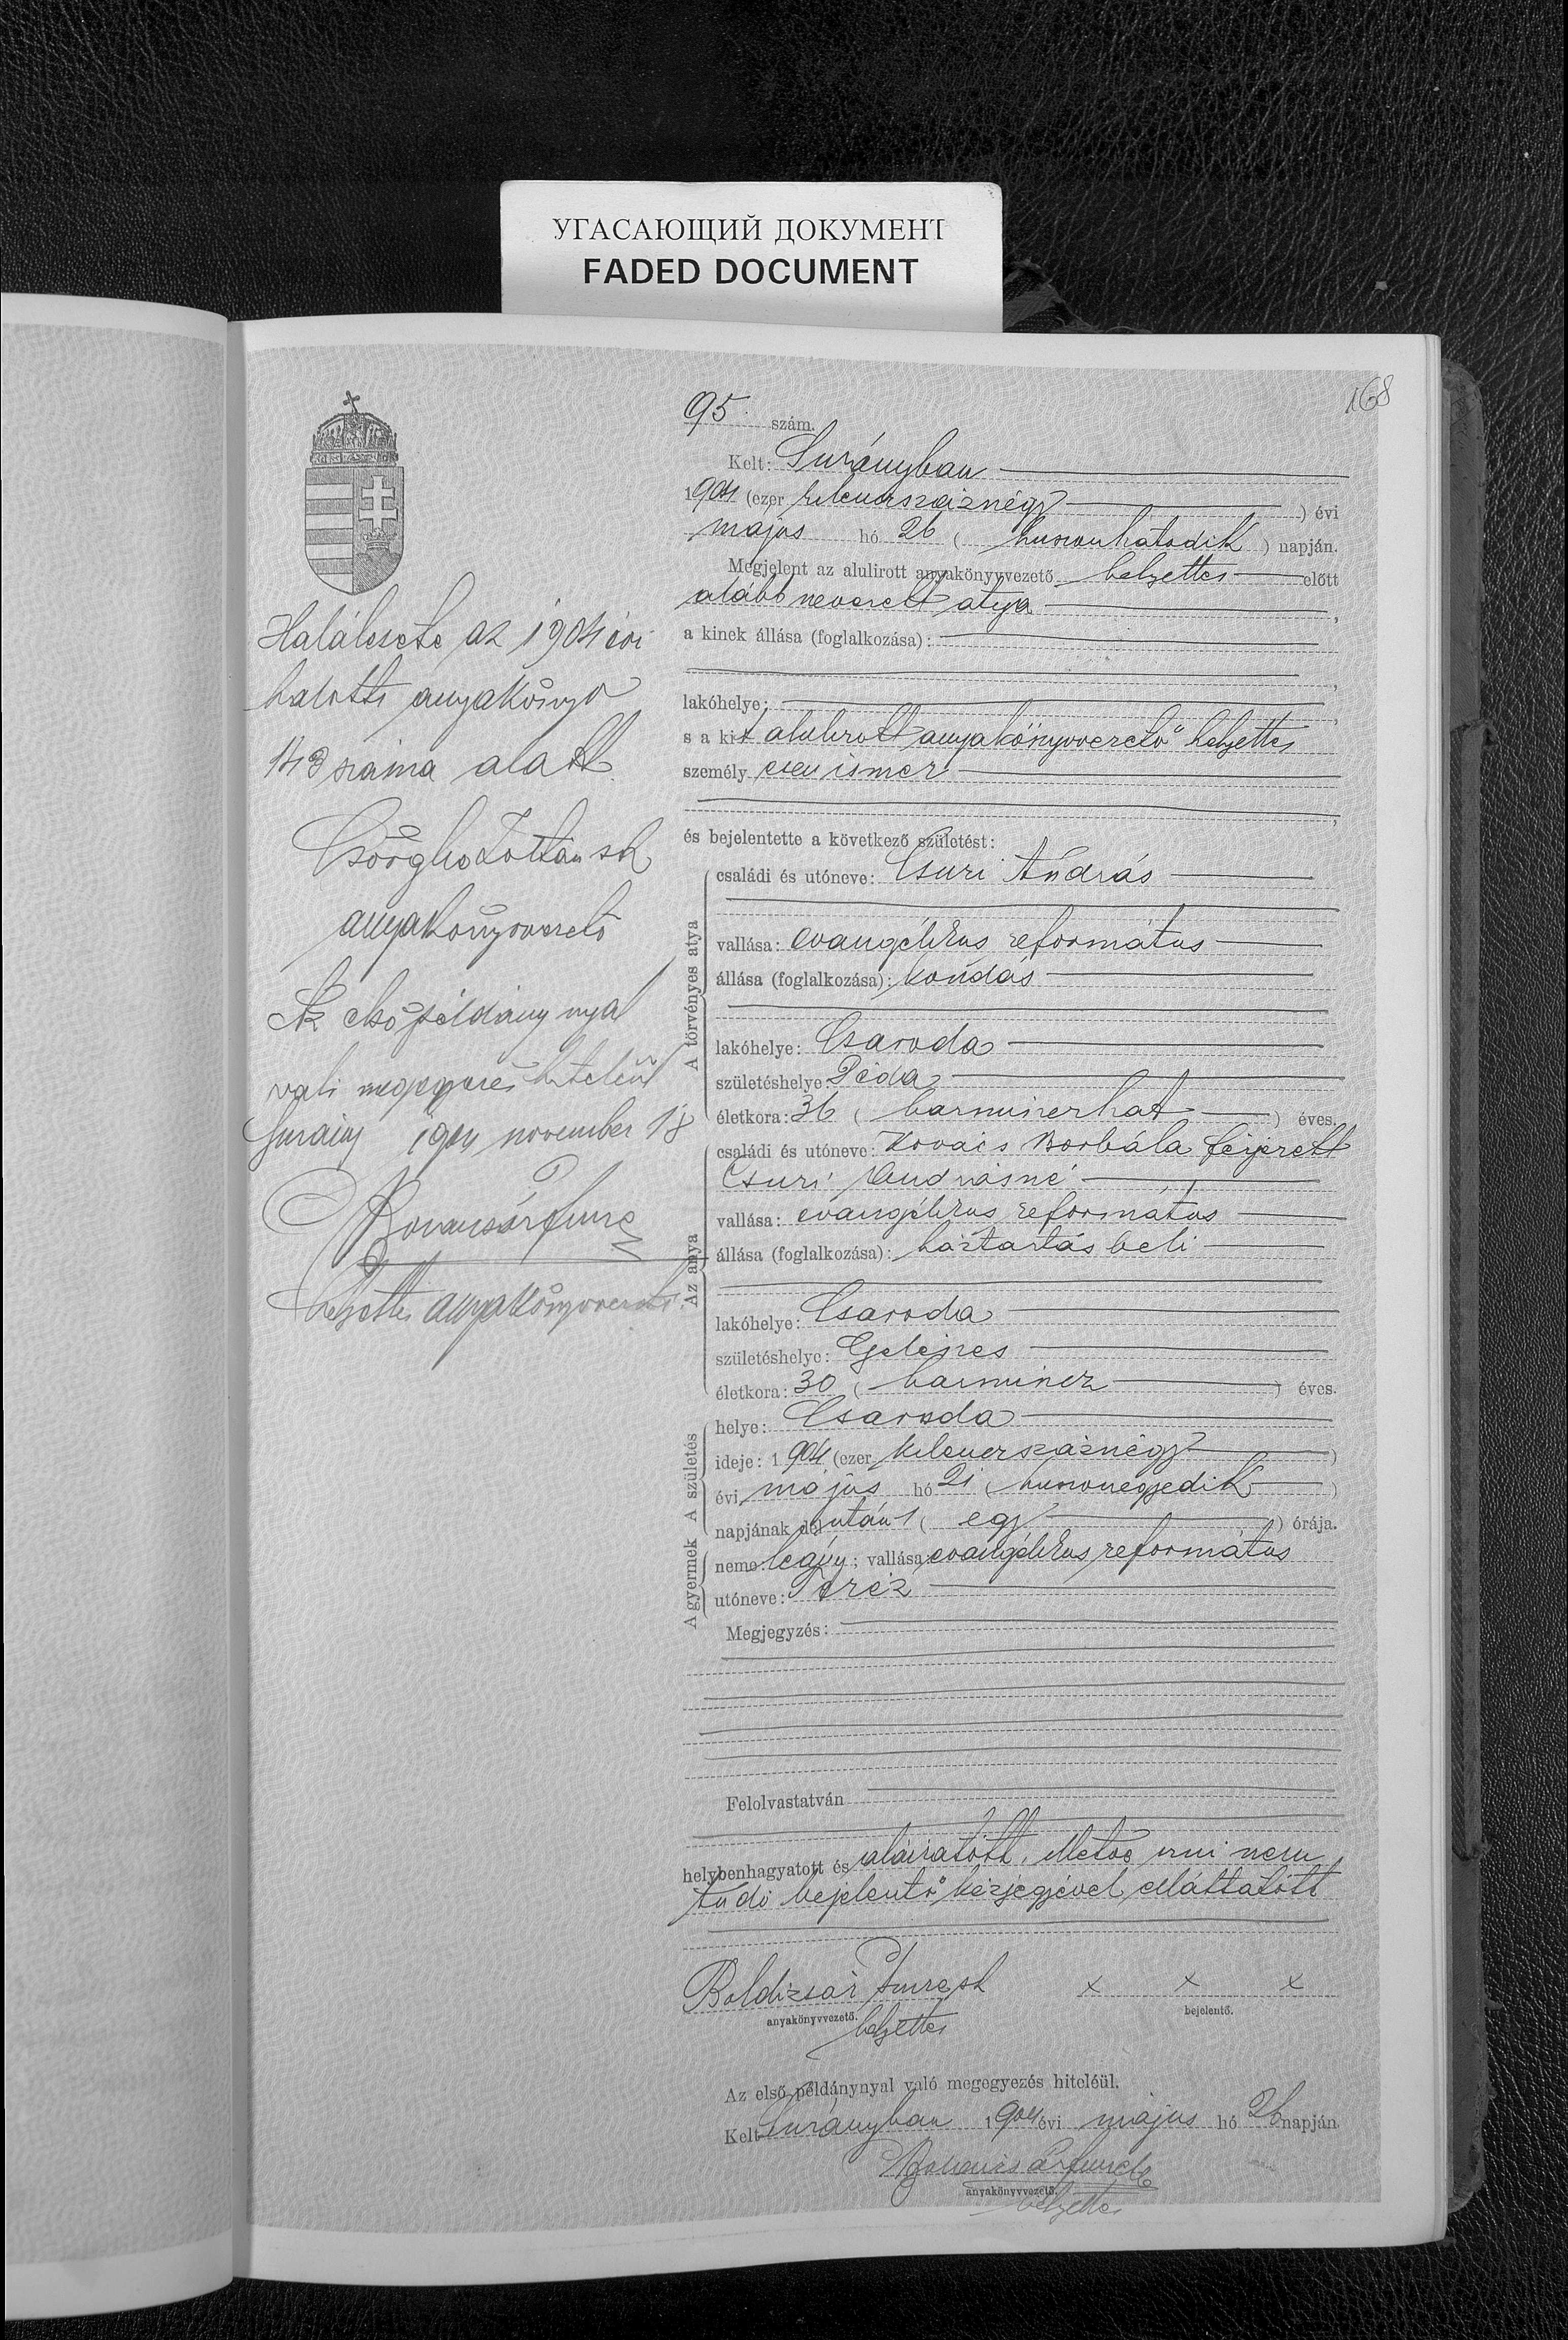 УГАСАЮЩИЙ ДОКУМЕНТ
FADED DOCUMENT
168
95 szám.
Kelt: Surányban
1904 (ezer kilencszáznégy) évi
május hó 26 (huszonhatodik) napján.
Megjelent az alulirott anyakönyvvezető helyettes előtt
alább nevezett atya,
a kinek állása (foglalkozása):
lakóhelye:
s a kit alulirott anyakönyvvezető helyettes
személyesen ismer
és bejelentette a következő születést:
A törvényes atya
családi és utóneve: Csuri András
vallása: evangélikus református
állása (foglalkozása): kondás
lakóhelye: Csaroda
születéshelye: Déda
életkora: 36 (harminczhat) éves.
Az anya
családi és utóneve: Kovács Borbála férjezett
Csuri Andrásné
vallása: evangélikus református
állása (foglalkozása): háztartásbeli
lakóhelye: Csaroda
születéshelye: Gelénes
életkora: 30 (harmincz) éves.
A születés
helye: Csaroda
ideje: 1904 (ezer kilenczszáznégy)
évi május hó 21 (huszonegyedik)
napjának délután 1 (egy) órája.
A gyermek
neme: leány; vallása: evangélikus református
utóneve: Teréz
Megjegyzés:
Felolvastatván
helybenhagyatott és aláiratott, illetve irni nem
tudó bejelentő kézjegyével elláttatott
Boldizsár Imre sk x x x
anyakönyvvezető. bejelentő.
helyettes
Az első példánynyal való megegyezés hiteléül.
Kelt Surányban 1904 évi május hó 26 napján
anyakönyvvezető.
helyettes
Halálesete az 1904 évi
halotti anyakönyv
143 száma alatt.
Csörgho Zoltán sk
anyakönyvvezető
Az első példánynyal
való megegyezés hiteléül
Surány 1904 november 18
helyettes anyakönyvvezető